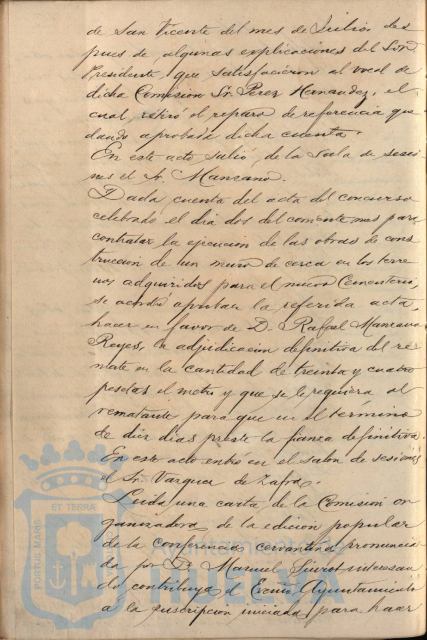 de San Vicente del mes de Julio, des
pues de algunas explicaciones del Sor
Presidente, que satisfacieron al vocal de
dicha Comision Sr. Perez Hernandez, el
cual, retiró el reparo de referencia que
dando aprobada dicha cuenta.
En este acto salió de la Sala de sesio
nes el Sr. Manzano.
Dada cuenta del acta del concurso
celebrado el dia dos del corriente mes para
contratar la ejecucion de las obras de cons
trucción de un muro de cerca en los terre
nos adquiridos para el nuevo Cementerio,
se acordó aprobar la referida acta,
hacer en favor de D. Rafael Manzano
Reyes, la adjudicacion definitiva del re
mate en la cantidad de treinta y cuatro
pesetas el metro y que se le requiera al
rematante para que en el termino
de diez dias preste la fianza definitiva.
En este acto entró en el salon de sesiones
el Sr. Vazquez de Zafra.
Leida una carta de la Comision or
ganizadora de la edicion popular
de la conferencia cervantina pronuncia
da por D. Manuel Siurot interesan
do contribuya el Excmo. Ayuntamiento
a la suscripcion iniciada para hacer
ET TERRA
PORTUS MARIS
Ayuntamiento de
HUELVA